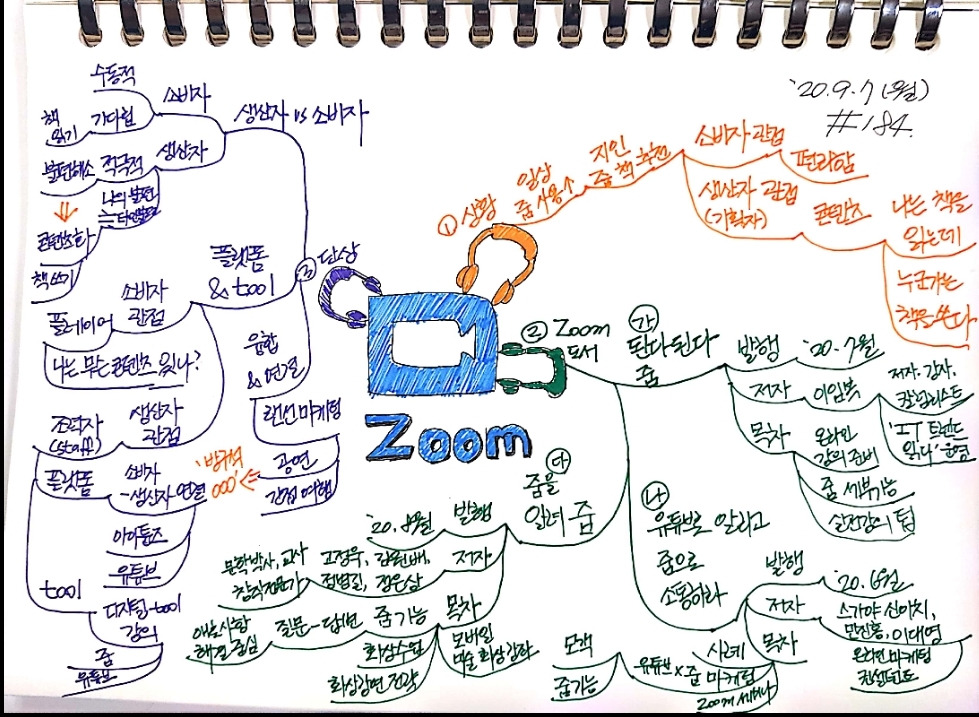 '20.9.7 (월)
#184.
Zoom
① 상황
일상
줌 사용 ↑
지인
줌 책 추천
소비자 관점
편리함
생산자 관점
(기획자)
콘텐츠
나는 책을
읽는데
누군가는
책을 쓴다
② Zoom
도서
㉮
된다 된다
줌
발행
'20.7월
저자
이임복
저자, 강사,
칼럼리스트
'IT 트렌드
읽다' 운영
목차
온라인
강의 준비
줌 세부기능
실전강의 팁
㉯
유튜브로 알리고
줌으로
소통하라
발행
'20.6월
저자
스가야 신이치,
이대영
온라인 마케팅
컨설턴트
목차
사례
유튜브 x 줌 마케팅
zoom 세미나
모객
줌기능
㉰
줌을
알려 줌
발행
'20.8월
저자
고정욱,
정은상
문학박사, 교사
창작전문가
목차
줌 기능
질문-답변
애로사항
해결 중심
화상수업
화상강연 전략
모바일
화상강화
③ 단상
생산자 vs 소비자
소비자
수동적
기다림
책
읽기
생산자
적극적
불편해소
나의 불편
≒ 타인불편
⇓
콘텐츠화
책쓰기
플랫폼
& tool
소비자
관점
플레이어
나는 무슨 콘텐츠 있나?
생산자
관점
조력자
(staff)
플랫폼
소비자
-생산자 연결
아이튠즈
유튜브
tool
디지털 tool
강의
줌
유튜브
융합
& 연결
랜선 마케팅
공연
여행
'방구석
000' <=